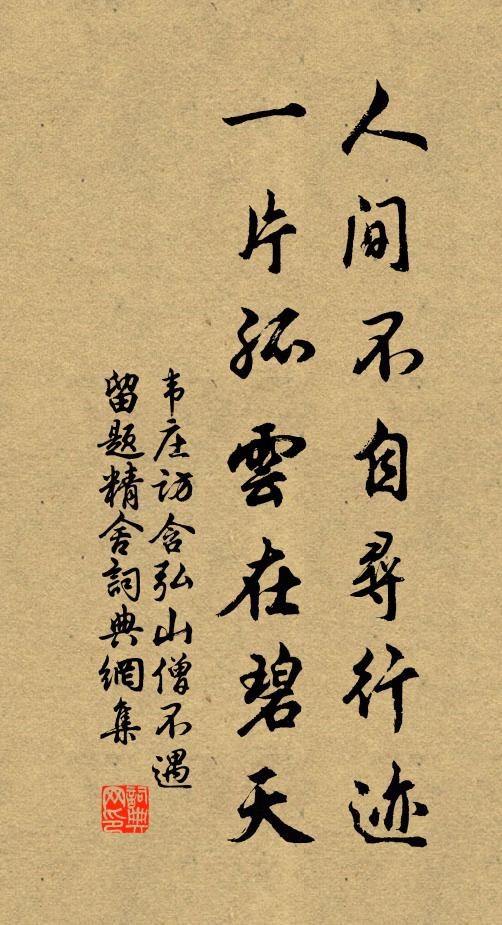 人間不自尋行迹
一片孤雲在碧天
韦庄访含弘山僧不遇
留题精舍詞典網集
詞典網印